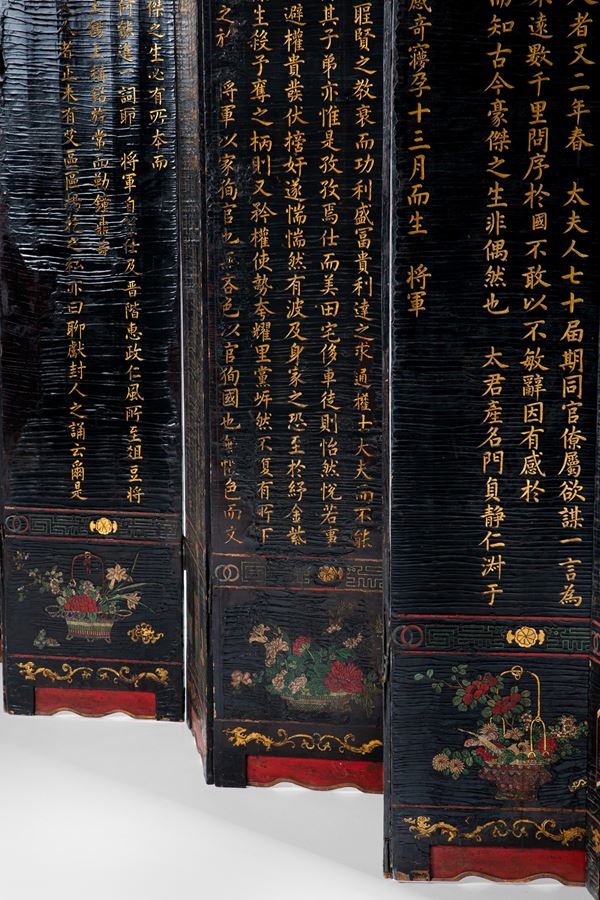 人者又二年春　太夫人七十届期同官僚屬欲謀一言為
不遠數千里問序於國不敢以不敏辭因有感於
而知古今豪傑之生非偶然也　太君產名門貞静仁淑于
感奇夢孕十三月而生　將軍
賢之教衰而功利盛富貴利達之求通權士大夫而不能
其子弟亦惟是孜孜焉仕而美田宅侈車徒則怡然悅若事
避權貴發伏榜奸遂惴惴然有波及身家之恐至於紆金紫
生殺予奪之柄則又矜權使勢夸耀里黨岸然不复有所下
之於　將軍以家徇官也吝色以官徇國也色而文
傑之生必有所本而
詞即　將軍自仕及晋階惠政仁風所至俎豆將
常而勒鐘鼎
者正未有艾區區亦曰聊獻封人之誦云爾是